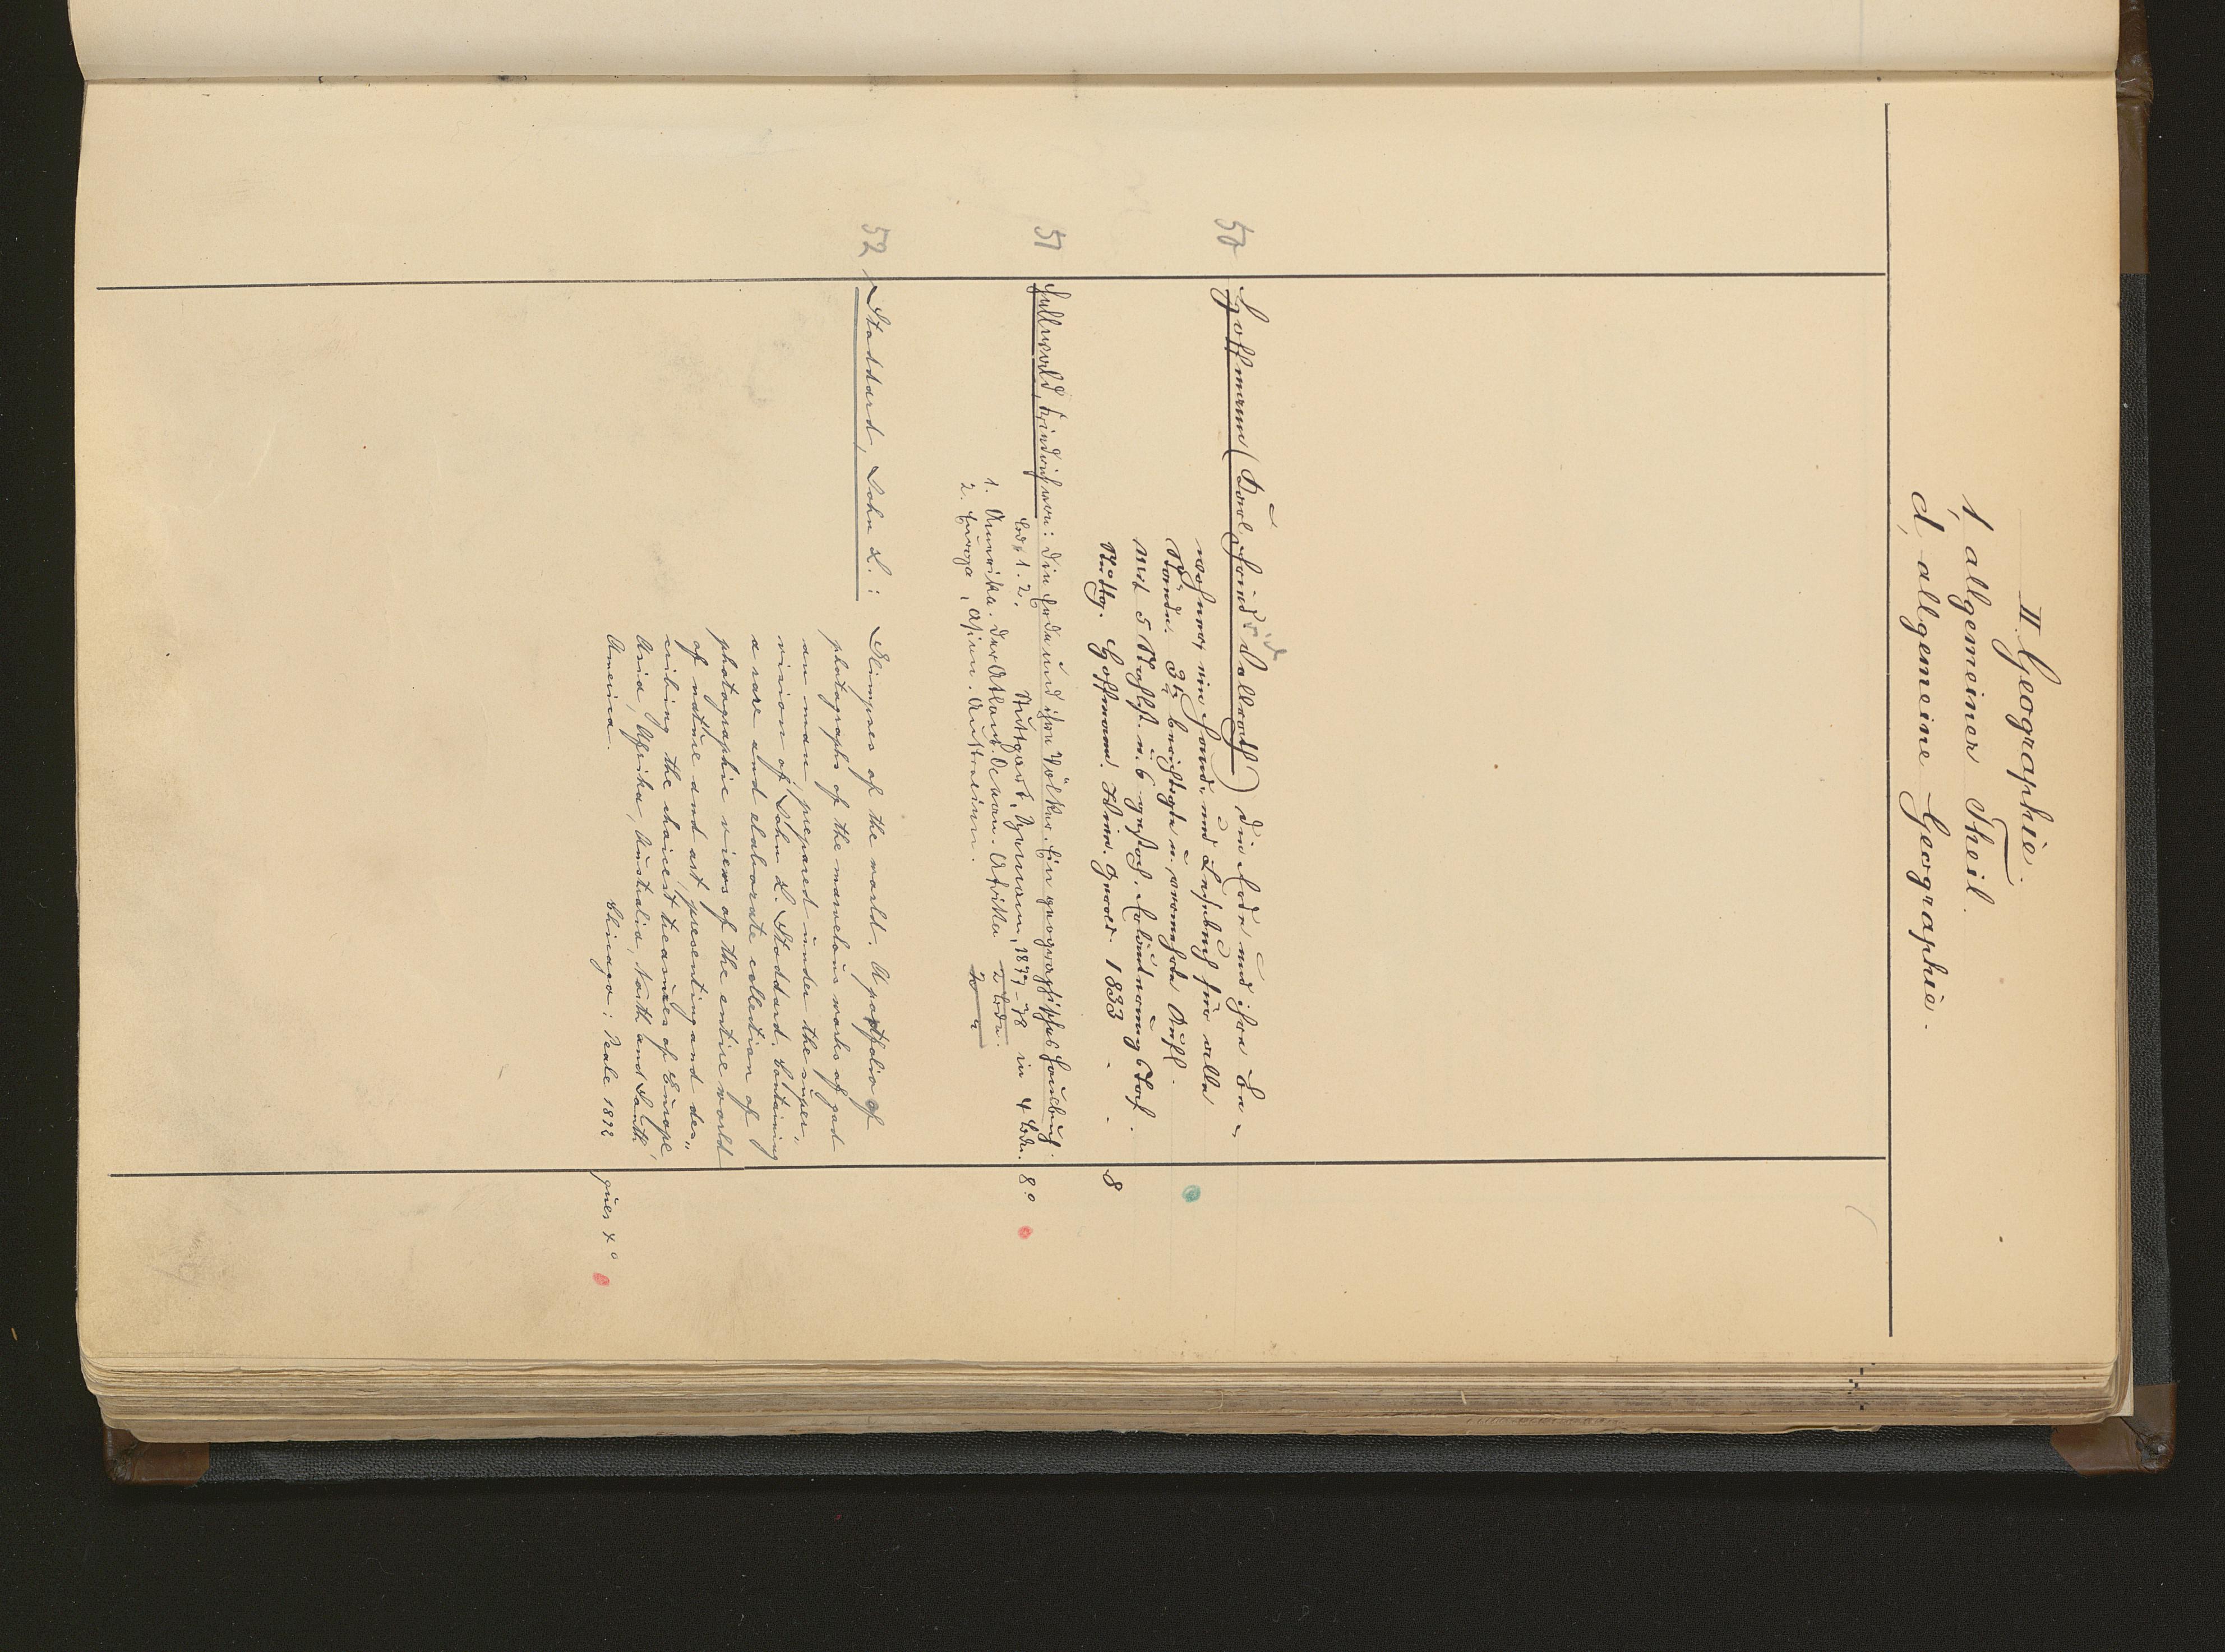 II. Geographie.
1, allgemeiner Theil.
d, allgemeine Geographie.
50 Hoffmann (Karl Friedr. Vollrath) die Erde und ihre Be-
wohner, ein Hand- und Lesebuch für alle
Stände. 3te berichtigte u. vermehrte Aufl.
Mit 5 Stahlst. u. 6 gestoch. Erläuterungstaf.
Stuttg. Hoffmann. Wien. Gerold 1833 - - 8
51 Hellwald, Friedrich von: Die Erde und ihre Völker. Ein geographisches Hausbuch.
Bd. 1. 2. Stuttgart, Spemann, 1877-78 in 4 Bdn. 8°
1. Amerika. Der Atlant. Ocean. Afrika 2 Bde.
2. Europa, Asien. Australien. 2 "
52 Stoddard, John L.: Glimpses of the world. A portfolio of
photographs of the marvelous works of god
an man, prepared under the super„
vision of John L. Stoddard. Containing
a rare and elaborate collection of
photographic views of the entire world
of nature and art presenting and des„
cribing the choicest treasures of Europe,
Asia, Afrika, Australia, North and South
America.
Chicago: Peale 1892 quer 4°